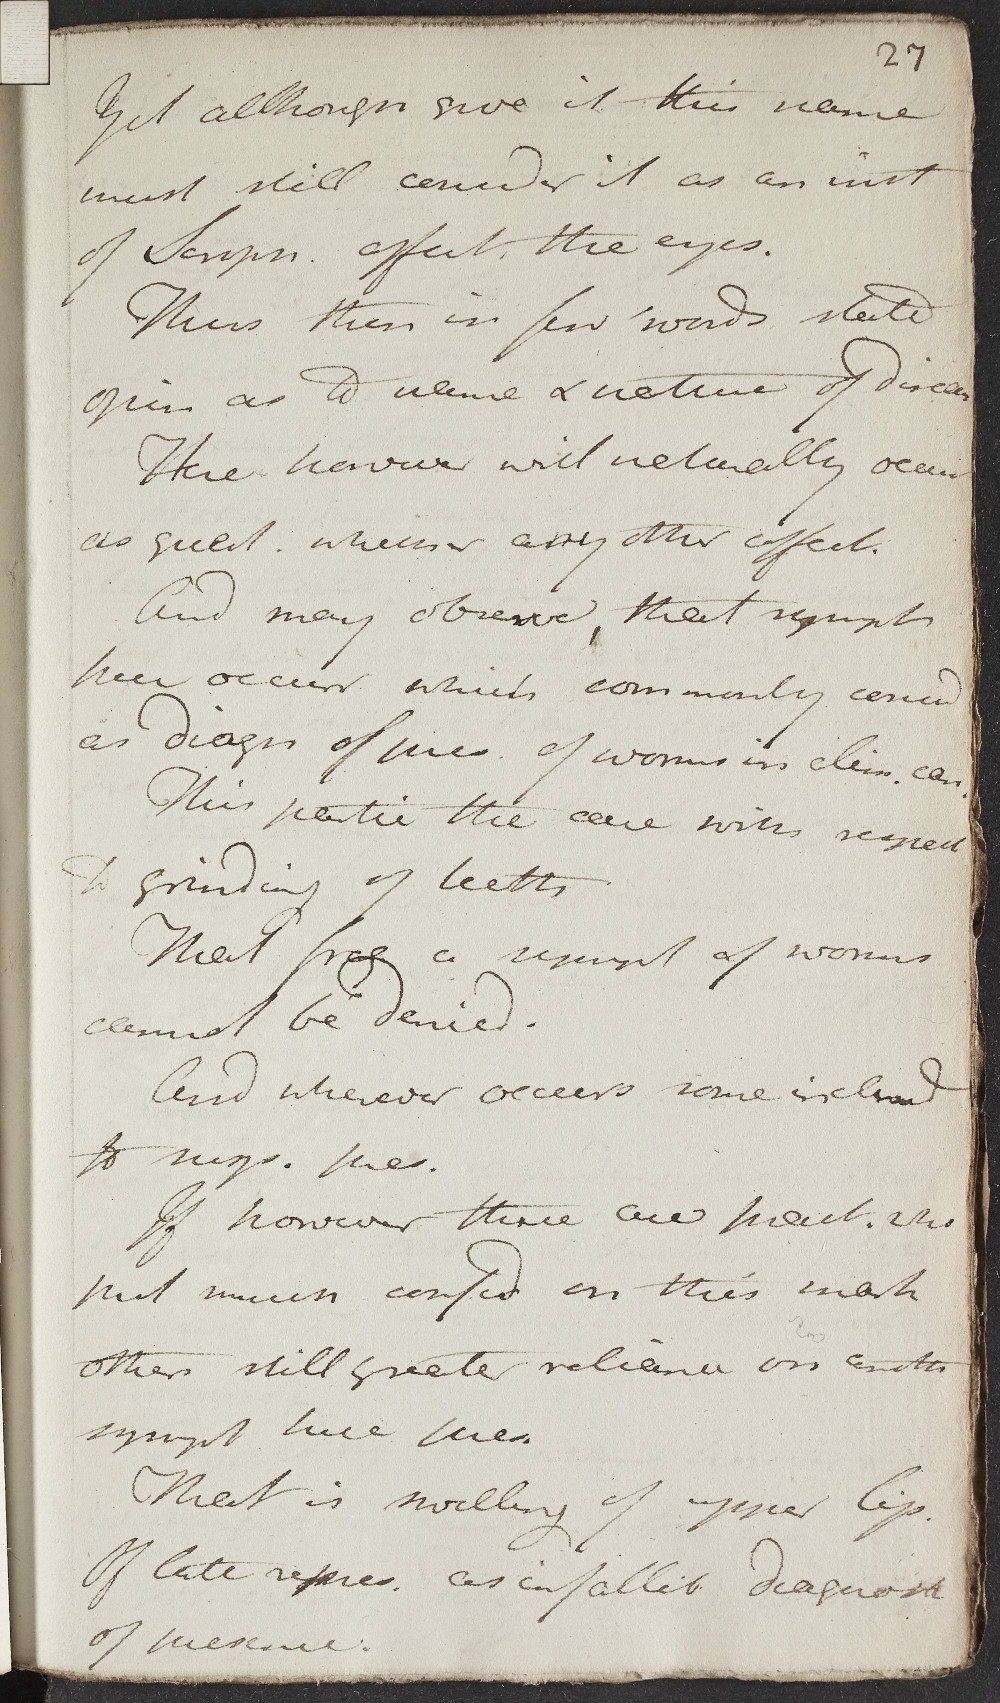 27
Yet although give it this name
must still consider it as an inst
of Scroph. affect. the eyes.
Thus then in few words stated
opin as to name & nature of diseas
Here however will naturally occur
as quest. whether any other affect.
And may observe, that sympt
here occur which commonly consid
as diagn of pres. of worms in alim. can.
This partic the case with respect
to grinding of teeth
That freq a sympt of worms
cannot be denied.
And wherever occurs some inclined
to susp. pres.
If however there are pract. who
put much confid on this mark
others still greater reliance on anoth
sympt here pres.
That is swelling of upper lip.
Of late repres. as infallib diagnost
of presence.